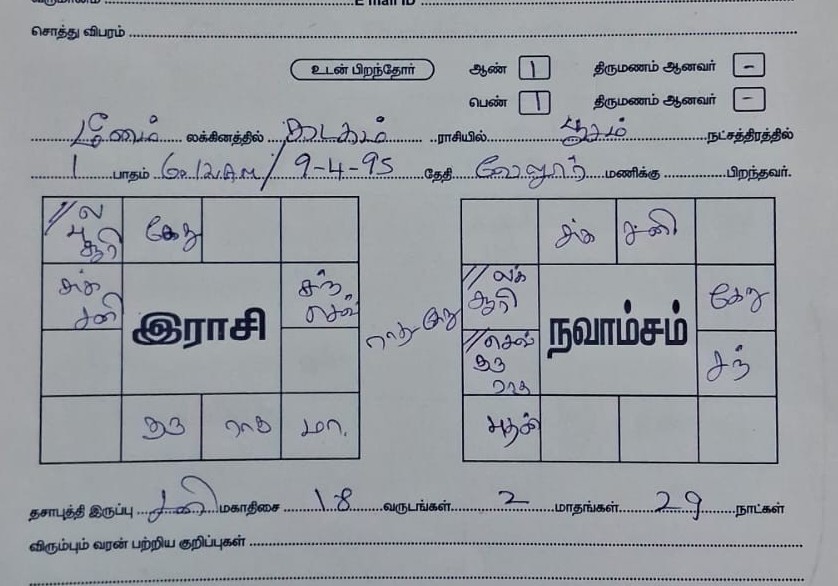 வருமானம் ............ E mail ID ............
சொத்து விபரம் ............
உடன் பிறந்தோர் ஆண் 1 திருமணம் ஆனவர் -
பெண் 1 திருமணம் ஆனவர் -
மீனம் லக்கினத்தில் கடகம் ராசியில் பூசம் நட்சத்திரத்தில்
1 பாதம் 9-4-95 தேதி வேலூர் மணிக்கு ............ பிறந்தவர்.
ல கேது
பு சூரி சுக் சனி
சுக் சனி இராசி சந் செவ் ராகு-கேது லக் சூரி நவாம்சம் கேது
செவ் குரு ராகு சந்
குரு ராகு மா. புதன்
தசாபுத்தி இருப்பு சனி மகாதிசை 18 வருடங்கள் 2 மாதங்கள் 29 நாட்கள்
விரும்பும் வரன் பற்றிய குறிப்புகள் ............